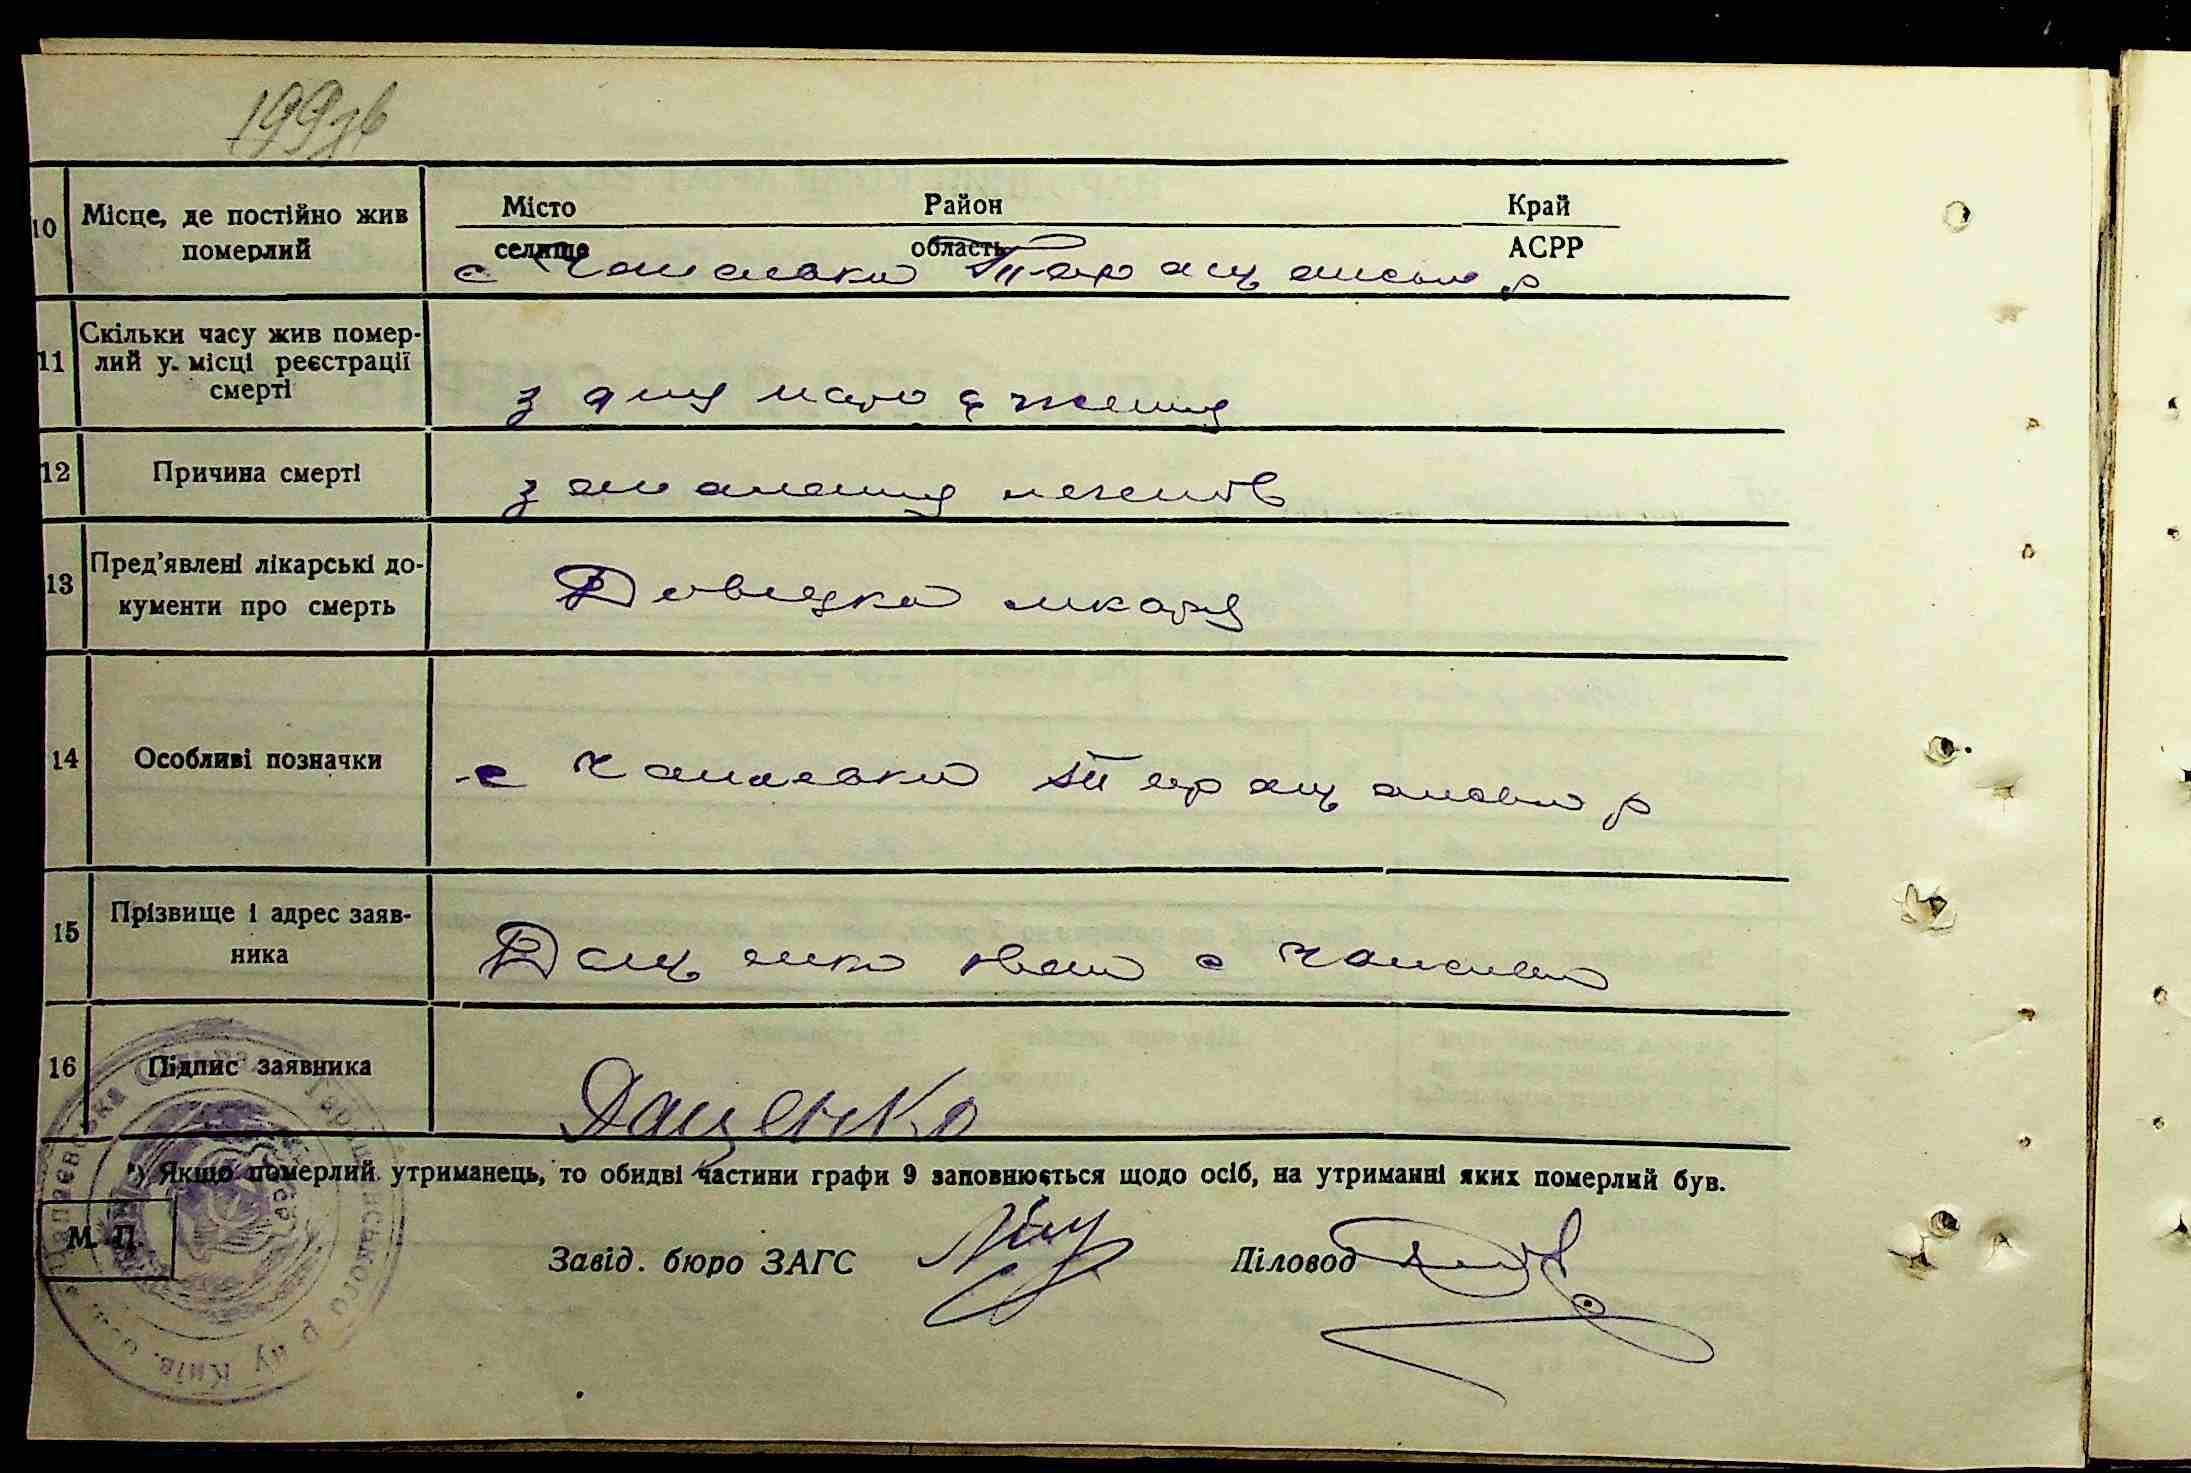 199зв
10 Місце, де постійно жив померлий
Місто Район Край
селище область АСРР
с Чапаєвка Таращанськ р
11 Скільки часу жив помер-
лий у місці реєстрації
смерті
з дня народження
12 Причина смерті
запалення легенів
13 Пред'явлені лікарські до-
кументи про смерть
Довідка лікаря
14 Особливі позначки
с Чапаєвка Таращанськ р
15 Прізвище і адрес заяв-
ника
Дащенко Іван с Чапаєвка
16 Підпис заявника
Дащенко
*) Якщо померлий утриманець, то обидві частини графи 9 заповнюється щодо осіб, на утриманні яких померлий був.
М. П.
Завід. бюро ЗАГС
Діловод
Чапаєвська Сільрада Таращанського р ну Київ. обл.